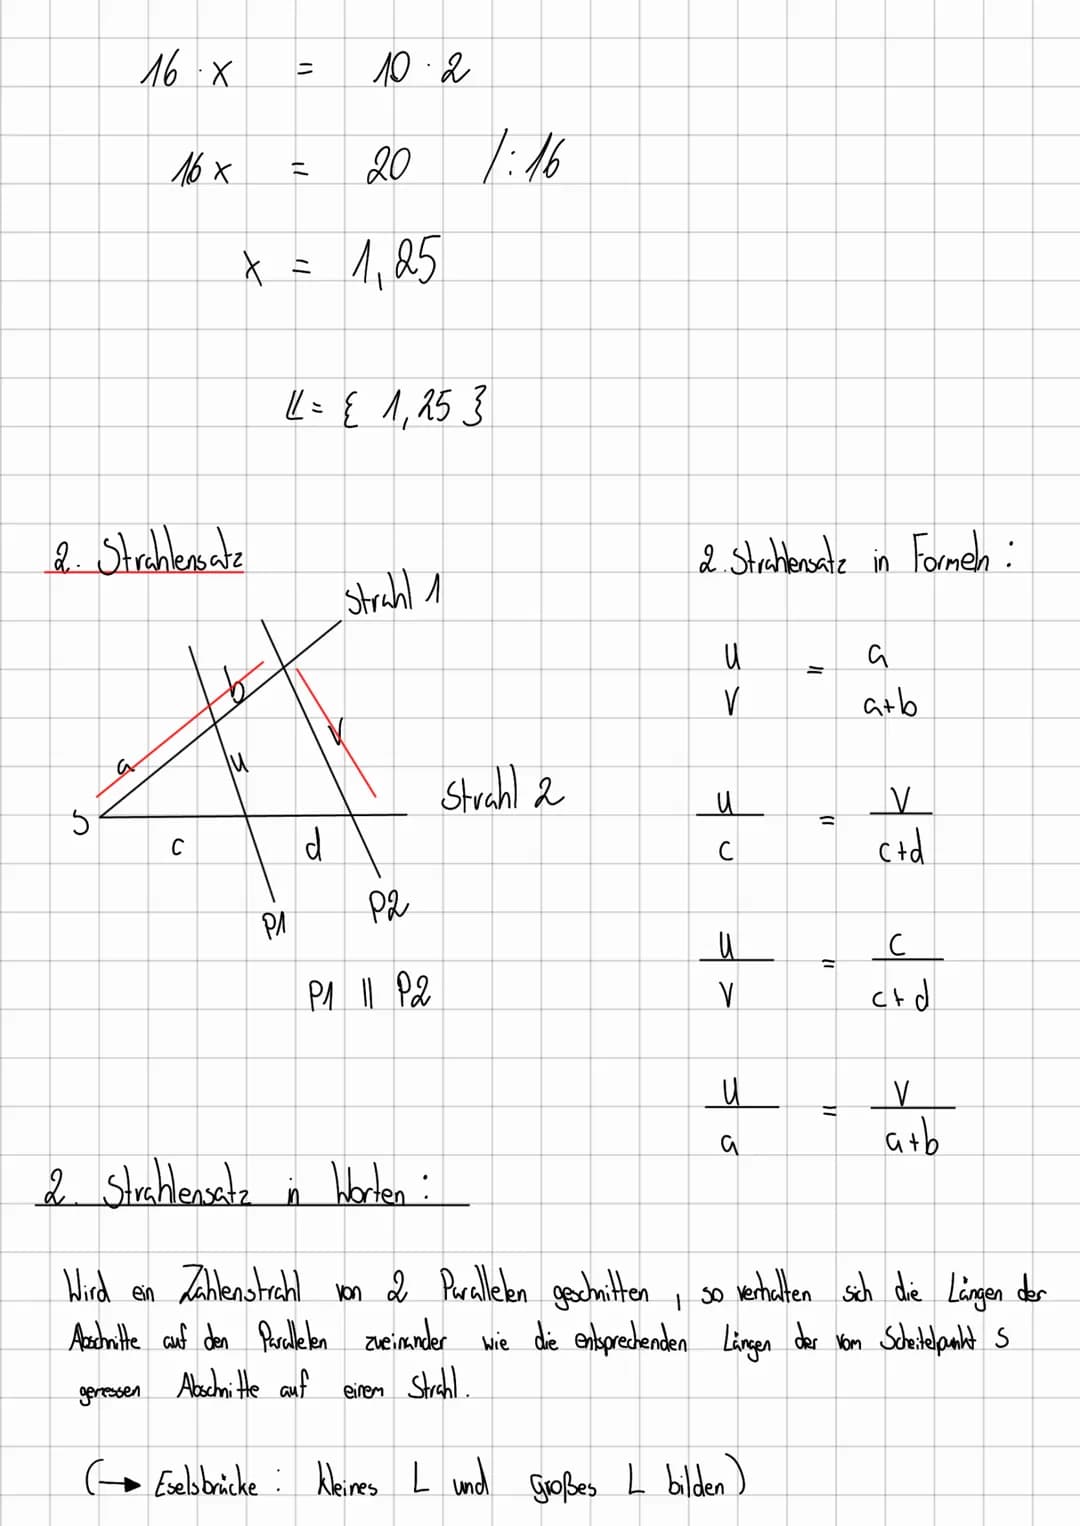 16 · x = 10 · 2
16 x = 20 /: 16
x = 1,25
𝕃 = { 1,25 }
2. Strahlensatz
2. Strahlensatz in Formeln :
Strahl 1
b
a
u
v
S
c
d
Strahl 2
P1
P2
P1 || P2
u = a
v a+b
u = v
c c+d
u = c
v c+d
u = v
a a+b
2. Strahlensatz in Worten :
Wird ein Zahlenstrahl von 2 Parallelen geschnitten , so verhalten sich die Längen der
Abschnitte auf den Parallelen zueinander wie die entsprechenden Längen der vom Scheitelpunkt S
gemessen Abschnitte auf einem Strahl.
(→ Eselsbrücke : kleines L und großes L bilden)